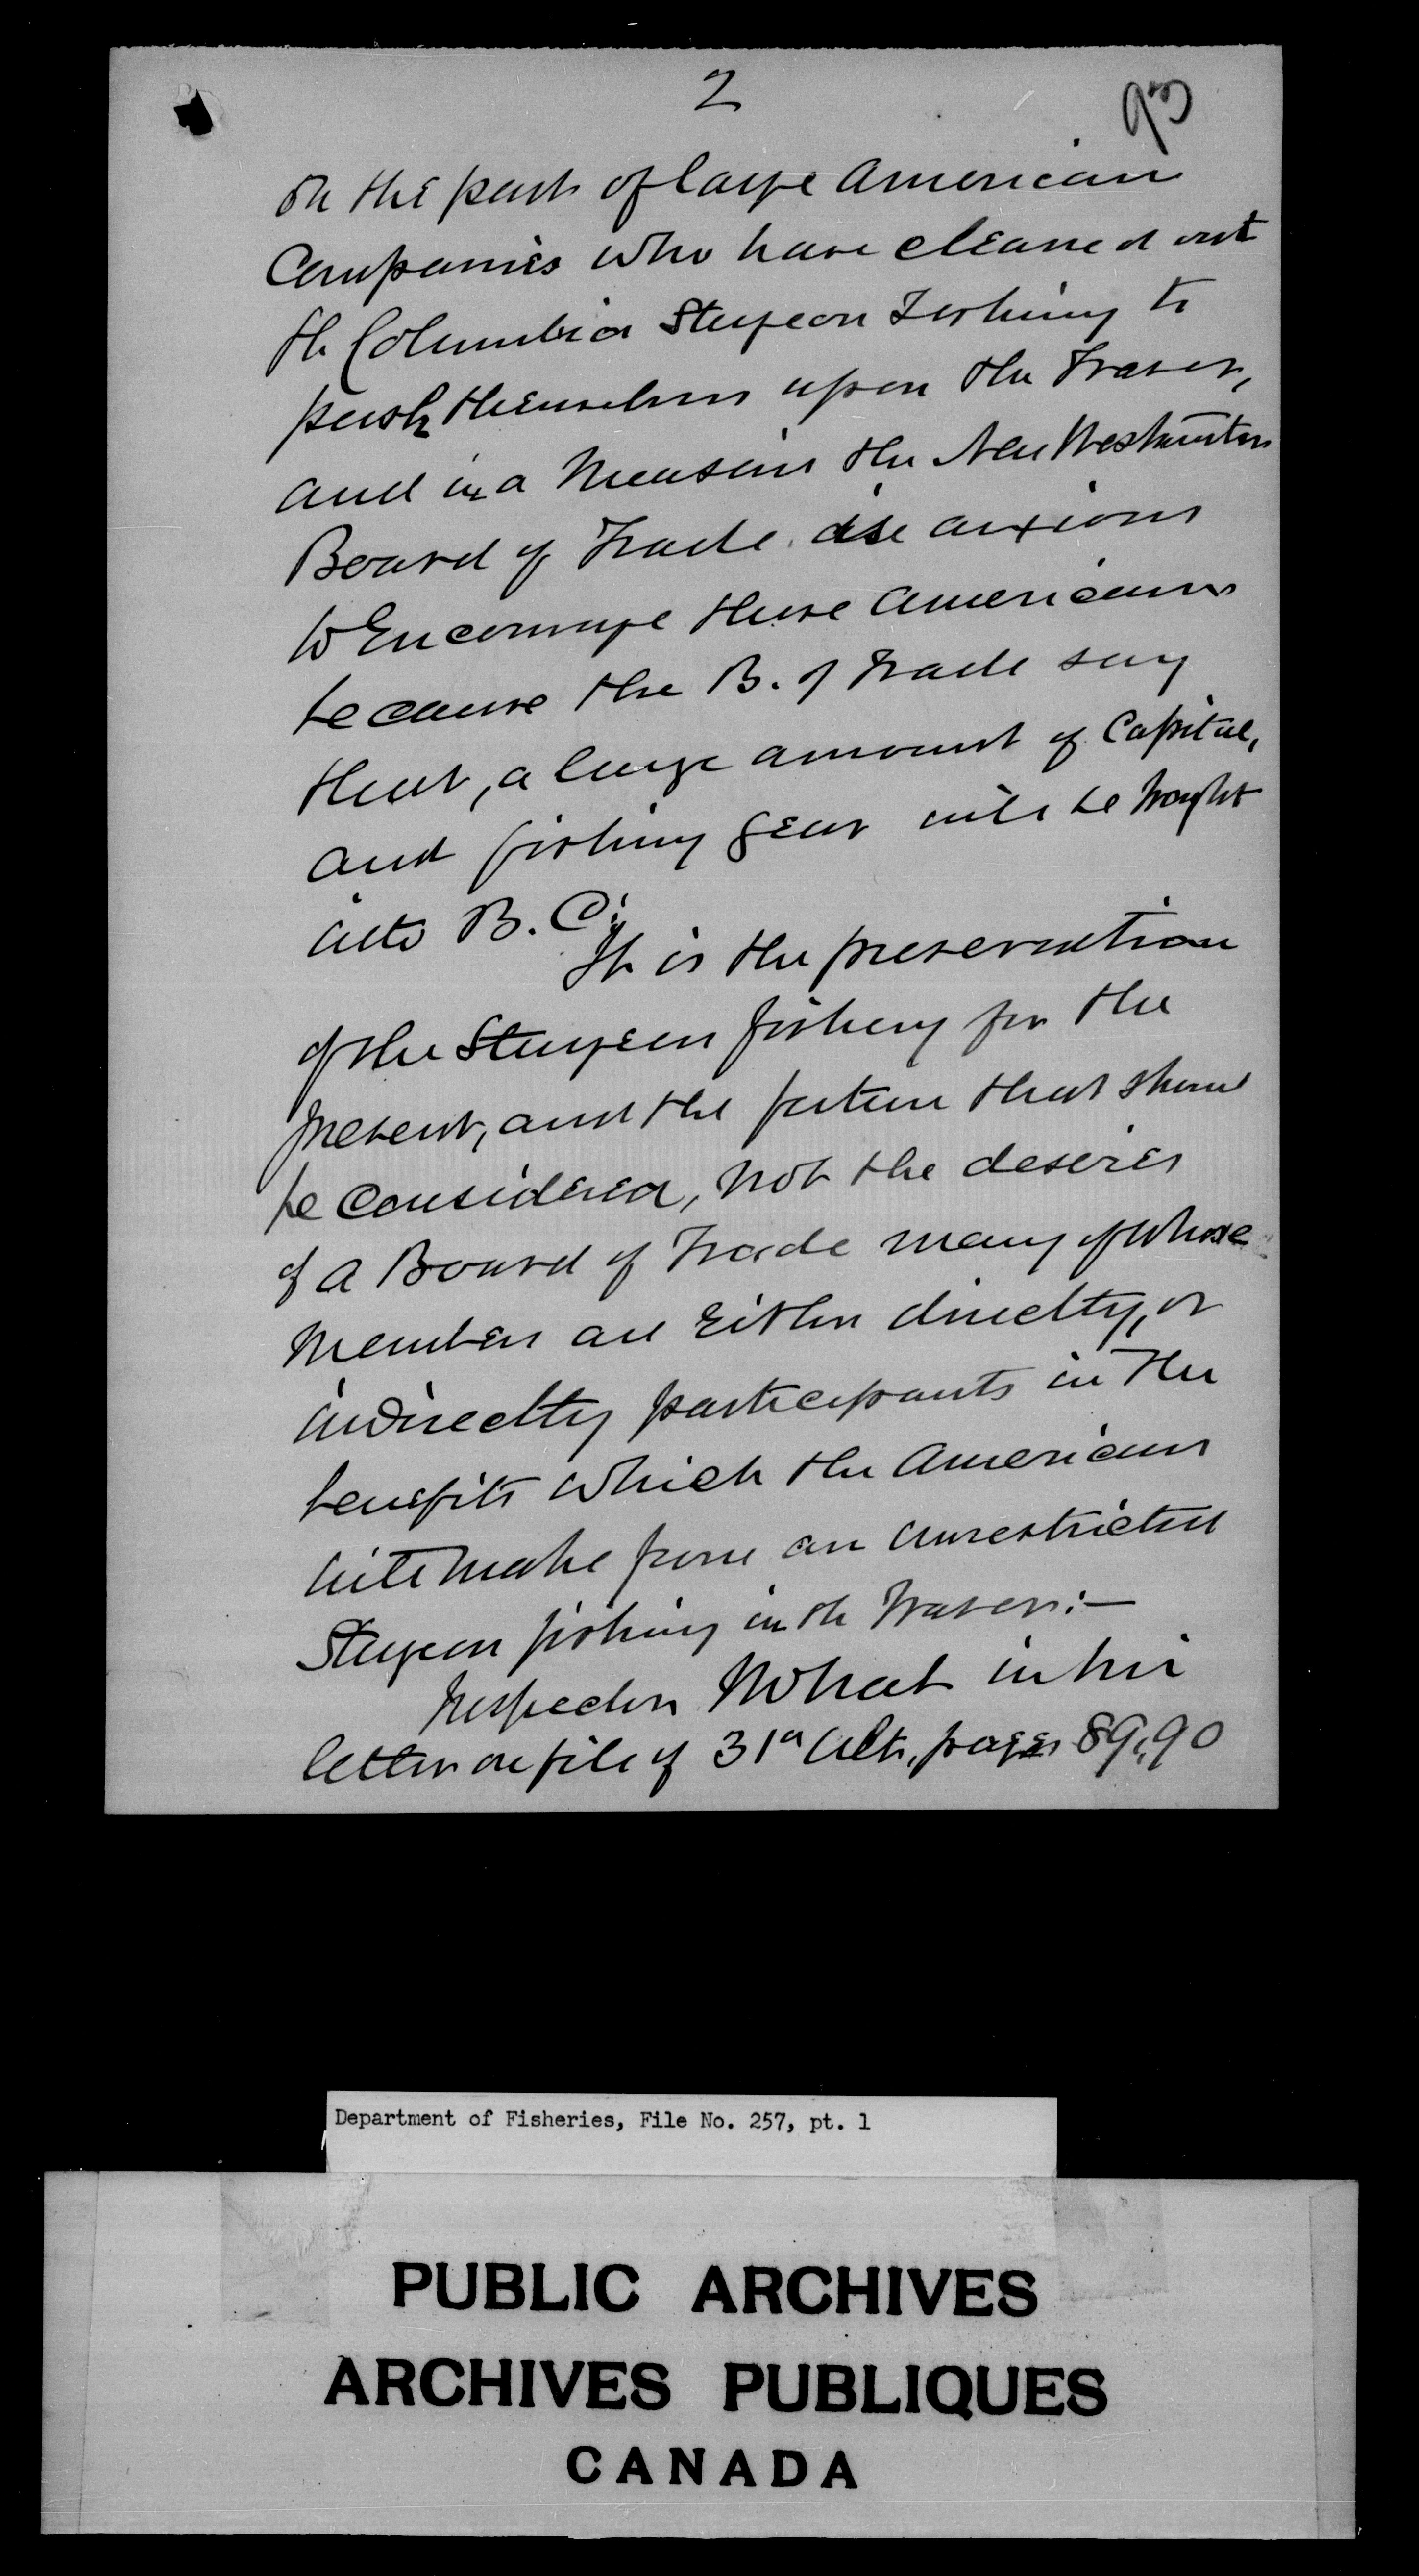 2
93
on the part of large American
Companies who have cleaned out
the Columbia Sturgeon Fishing to
push themselves upon the Fraser,
and in a measure the New Westminster
Board of Trade are anxious
to Encourage these Americans
because the B. of Trade say
that, a large amount of Capital,
and fishing gear will be brought
into B. C:
It is the preservation
of the Sturgeon fishery for the
present, and the future that should
be considered, not the desires
of a Board of Trade many of whose
members are Either directly, or
indirectly participants in the
benefits which the Americans
will make from an unrestricted
Sturgeon fishing in the Fraser:—
Inspector McNab in his
letter on file of 31st Ulto, pages 89,90
Department of Fisheries, File No. 257, pt. 1
PUBLIC ARCHIVES
ARCHIVES PUBLIQUES
CANADA